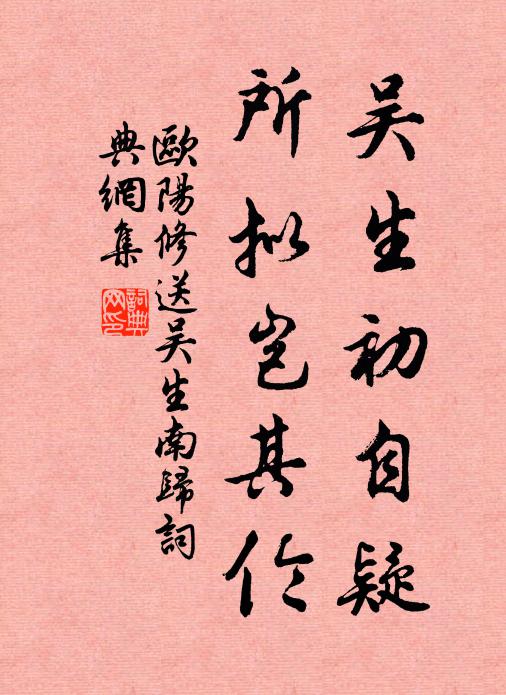 吴生初自疑
所拟岂其伦
歐陽修送吴生南歸詞
典網集
詞典网印